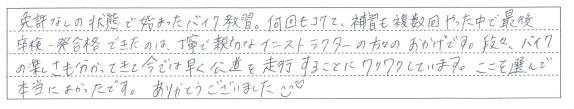 免許なしの状態で始まったバイク教習。何回もコケて、補習も複数回やった中で最後
卒検一発合格できたのは、丁寧で親切なインストラクターの方々のおかげです。段々、バイク
の楽しさも分かってきて今では早く公道を走行することにワクワクしています。ここを選んで
本当によかったです。ありがとうございました